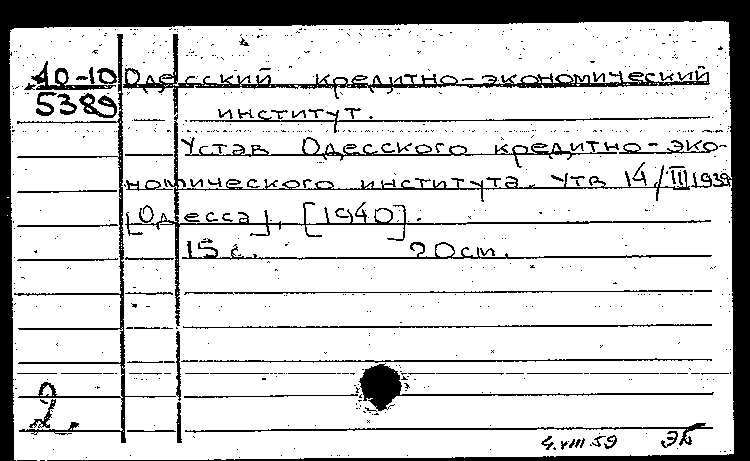 40-10 Одесский кредитно-экономический
5389 институт.
Устав Одесского кредитно-эко-
номического института. Утв 14/III 1939
[Одесса], [1940].
15 с. 20 см.
2.
4.VIII 59 ЭБ